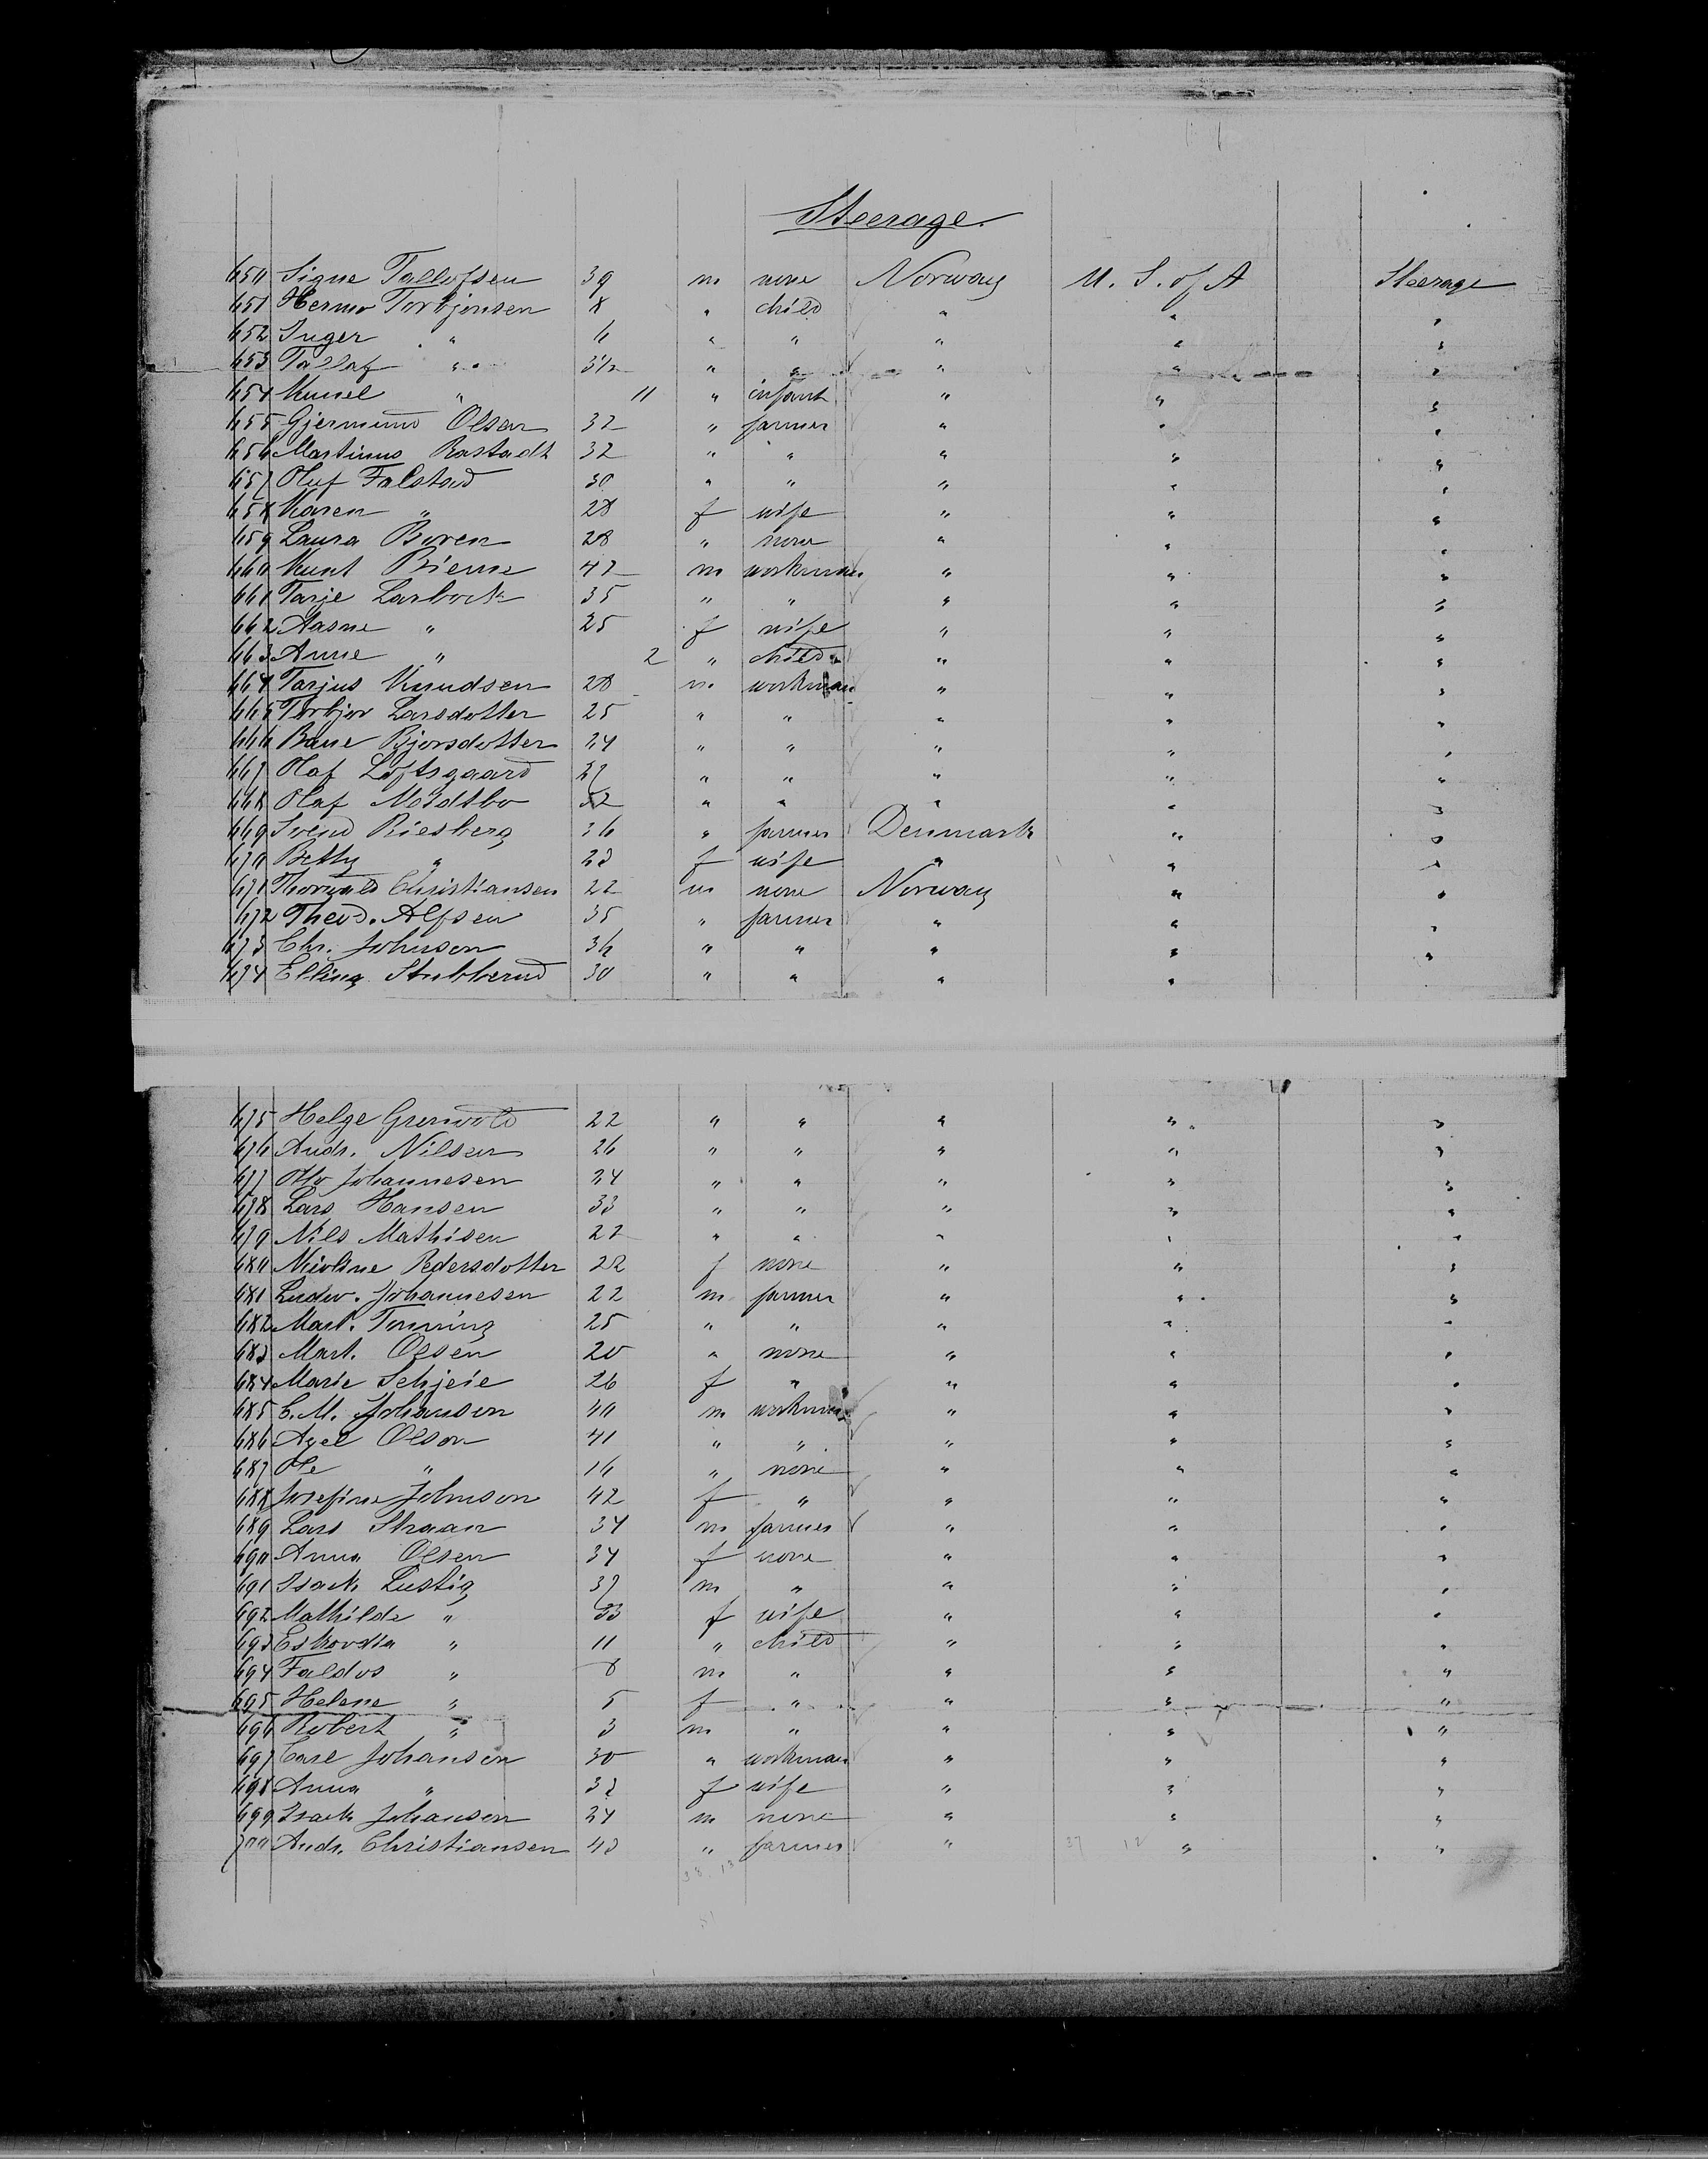 Steerage.
650 Signe Tallofsen 39 m none Norway U. S. of A Steerage
651 Hermo Torbjonsen 8 " child " " "
652 Inger " 6 " " " " "
653 Tallaf " 3 1/2 " " " " "
654 Kunel " 11 " infant " " "
655 Gjermund Olsen 32 " farmer " " "
656 Martinus Rastadt 32 " " " " "
657 Oluf Falstad 30 " " " " "
658 Karen " 28 f wife " " "
659 Laura Boren 28 " none " " "
660 Kunt 42 m workman " " "
661 Tarje Larbock 35 " " " " "
662 Aasne " 25 f wife " " "
663 Anne " 2 " child " " "
664 Tarjus Knudsen 28 m workman " " "
665 Torbjor Larsdotter 25 " " " " "
666 Bjorsdotter 24 " " " " "
667 Olaf Loftsgaard " " " " "
668 Olaf Mordtbo 52 " " " " "
669 Svend Riesberg 36 " farmer Denmark " "
670 Betty " 23 f wife " " "
671 Thorvald Christiansen 22 m none Norway " "
672 Theod. Alfsen 35 " farmer " " "
673 Chr. Johnson 36 " " " " "
674 Elling Stubberud 30 " " " " "
675 Helge Grenvold 22 " " " " "
676 Andr. Nilsen 26 " " " " "
677 Otto Johannesen 24 " " " " "
678 Lars Hansen 33 " " " " "
679 Nils Mathisen 22 " " " " "
680 Pedersdotter 22 f none " " "
681 Ludw. Johannesen 22 m farmer " " "
682 Mart. Tonning 25 " " " " "
683 Mart. Olsen 20 " none " " "
684 Marie Schjeie 26 f " " " "
685 C. M. Johanson 40 m workman " " "
686 Axel Olson 41 " " " " "
687 Ole " 16 " none " " "
688 Josefine Johnson 42 f " " " "
689 Lars Straan 34 m farmer " " "
690 Anna Olsen 34 f none " " "
691 Isack Lustig 37 m " " " "
692 Mathilde " 33 f wife " " "
693 " 11 " child " " "
694 Faldos " 8 m " " " "
695 Helene " 5 f " " " "
696 Robert " 3 m " " " "
697 Carl Johanson 30 " workman " " "
698 Anna " 32 f wife " " "
699 Isack Johanson 24 m none " " "
700 Andr. Christiansen 43 " farmer " " "